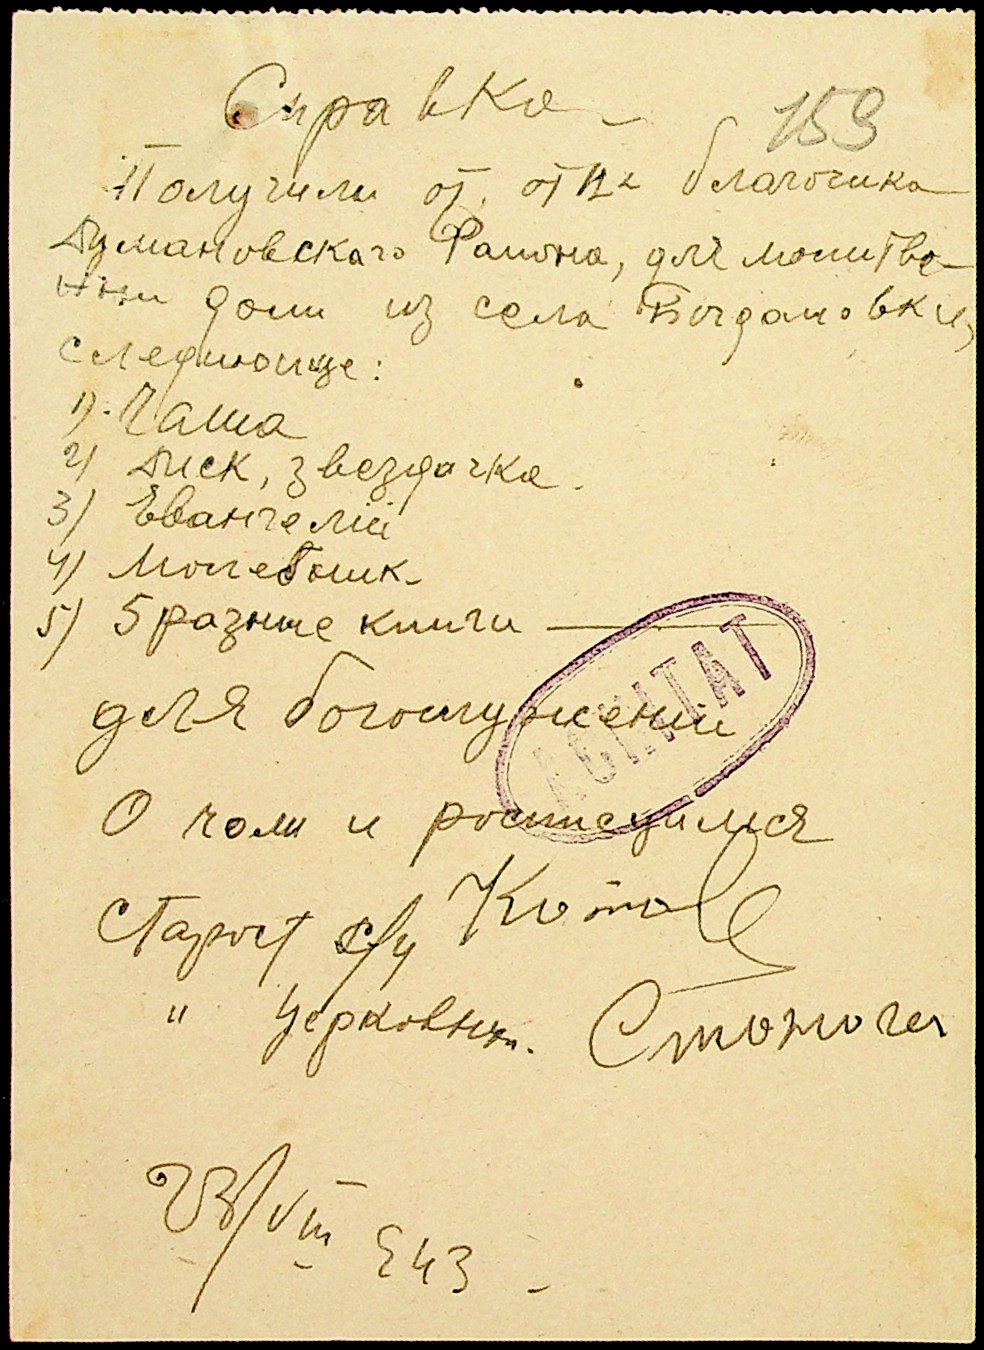 Справка
159
Получили от. отца благочика
Думановскаго Района, для молитве-
нни доми из села Богдановки,
следиющие:
1). Чаша
2) Диск, звездочка.
3) Евангелій
4) Молебник.
5) 5 разные книги —
для богослуженій
АСИТАТ
О чоли и росписуимся
Старост с/у Котов
" Церковни. Стонога
23/VIII 943